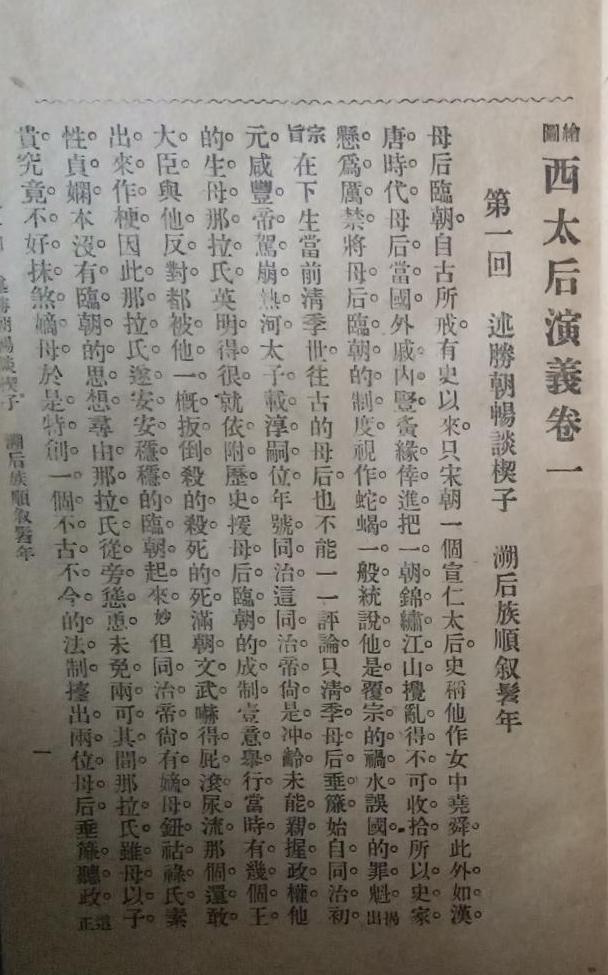 繪圖西太后演義卷一
第一回 述勝朝暢談楔子 溯后族順叙髫年
母后臨朝。自古所戒。有史以來。只宋朝一個宣仁太后。史稱他作女中堯舜。此外如漢。
唐時代。母后當國。外戚內豎。夤緣倖進。把一朝錦繡江山。攪亂得不可收拾。所以史家
懸爲厲禁。將母后臨朝的制度。視作蛇蝎一般。統說他是覆宗的禍水。誤國的罪魁。揭出
宗旨在下生當前淸季世。往古的母后。也不能一一評論。只淸季母后垂簾。始自同治初
元。咸豐帝駕崩熱河。太子載淳嗣位。年號同治。這同治帝尙是冲齡。未能親握政權。他
的生母那拉氏。英明得很。就依附歷史。援母后臨朝的成制。壹意舉行。當時有幾個王
大臣與他反對。都被他一概扳倒。殺的殺。死的死。滿朝文武。嚇得屁滾尿流。那個還敢
出來作梗。因此那拉氏遂安安穩穩的臨朝起來。妙但同治帝尙有嫡母鈕祜祿氏。素
性貞嫻。本沒有臨朝的思想。尋由那拉氏從旁慫恿。未免兩可其間。那拉氏雖母以子
貴。究竟不好抹煞嫡母。於是特創一個不古不今的法制。擡出兩位母后。垂簾聽政。這正
溯后族順叙髫年
一